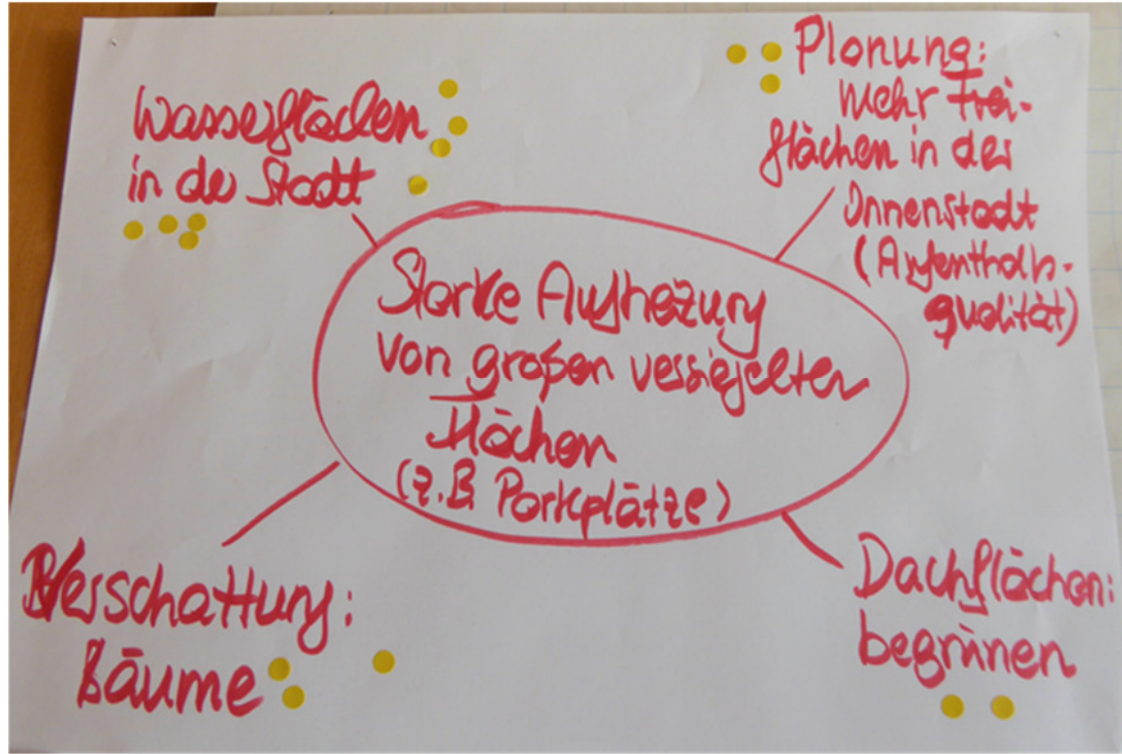 Wasserflächen
in der Stadt
Planung:
mehr Frei-
flächen in der
Innenstadt
(Aufenthalts-
qualität)
Starke Aufheizung
von großen versiegelten
Flächen
(z.B. Parkplätze)
Verschattung:
Bäume
Dachflächen:
begrünen